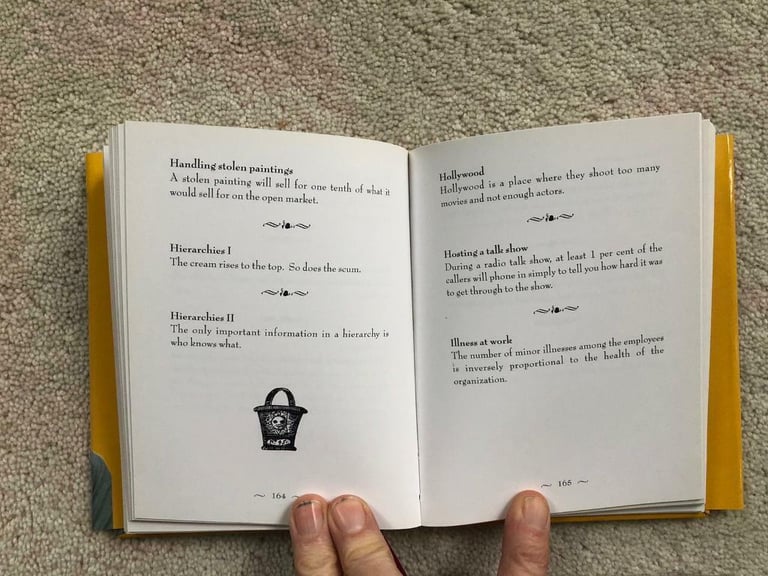 Handling stolen paintings
A stolen painting will sell for one tenth of what it
would sell for on the open market.
Hierarchies I
The cream rises to the top. So does the scum.
Hierarchies II
The only important information in a hierarchy is
who knows what.
164
Hollywood
Hollywood is a place where they shoot too many
movies and not enough actors.
Hosting a talk show
During a radio talk show, at least 1 per cent of the
callers will phone in simply to tell you how hard it was
to get through to the show.
Illness at work
The number of minor illnesses among the employees
is inversely proportional to the health of the
organization.
165